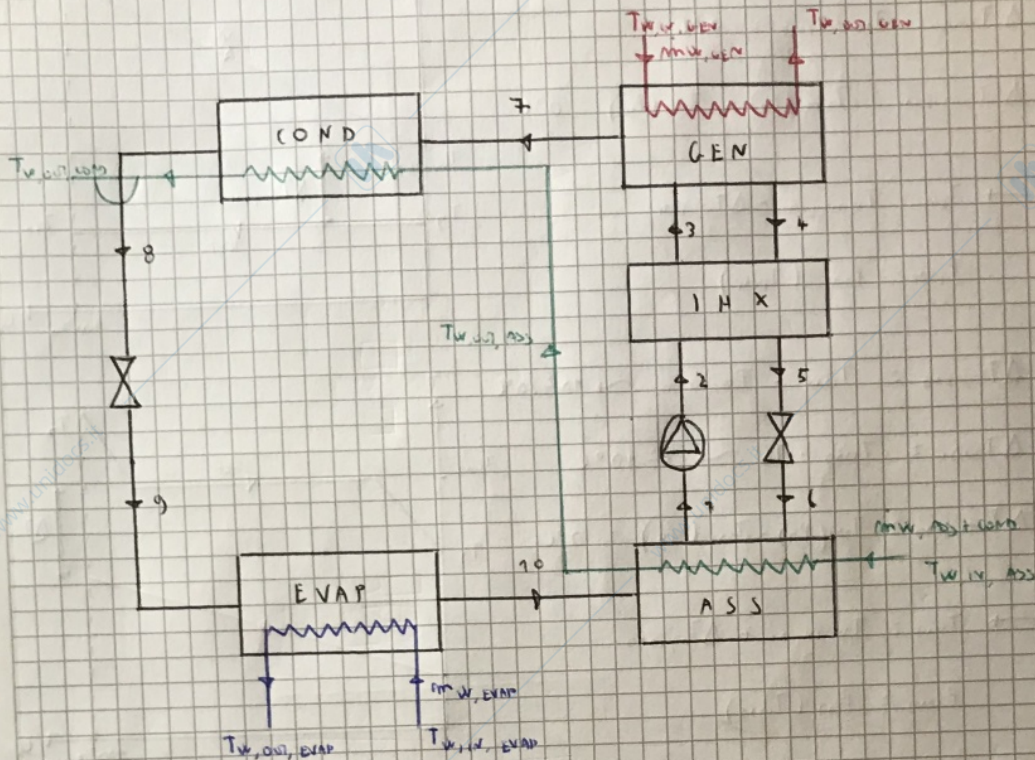 T W, IN, GEN
T W, OUT, GEN
ṁ W, GEN
7
COND
GEN
T W, OUT, COND
8
3
4
IHX
T W, OUT, ASS
2
5
9
1
6
ṁ W, ASS + COND
T W, IN, ASS
10
EVAP
ASS
ṁ W, EVAP
T W, OUT, EVAP
T W, IN, EVAP
www.unidocs.